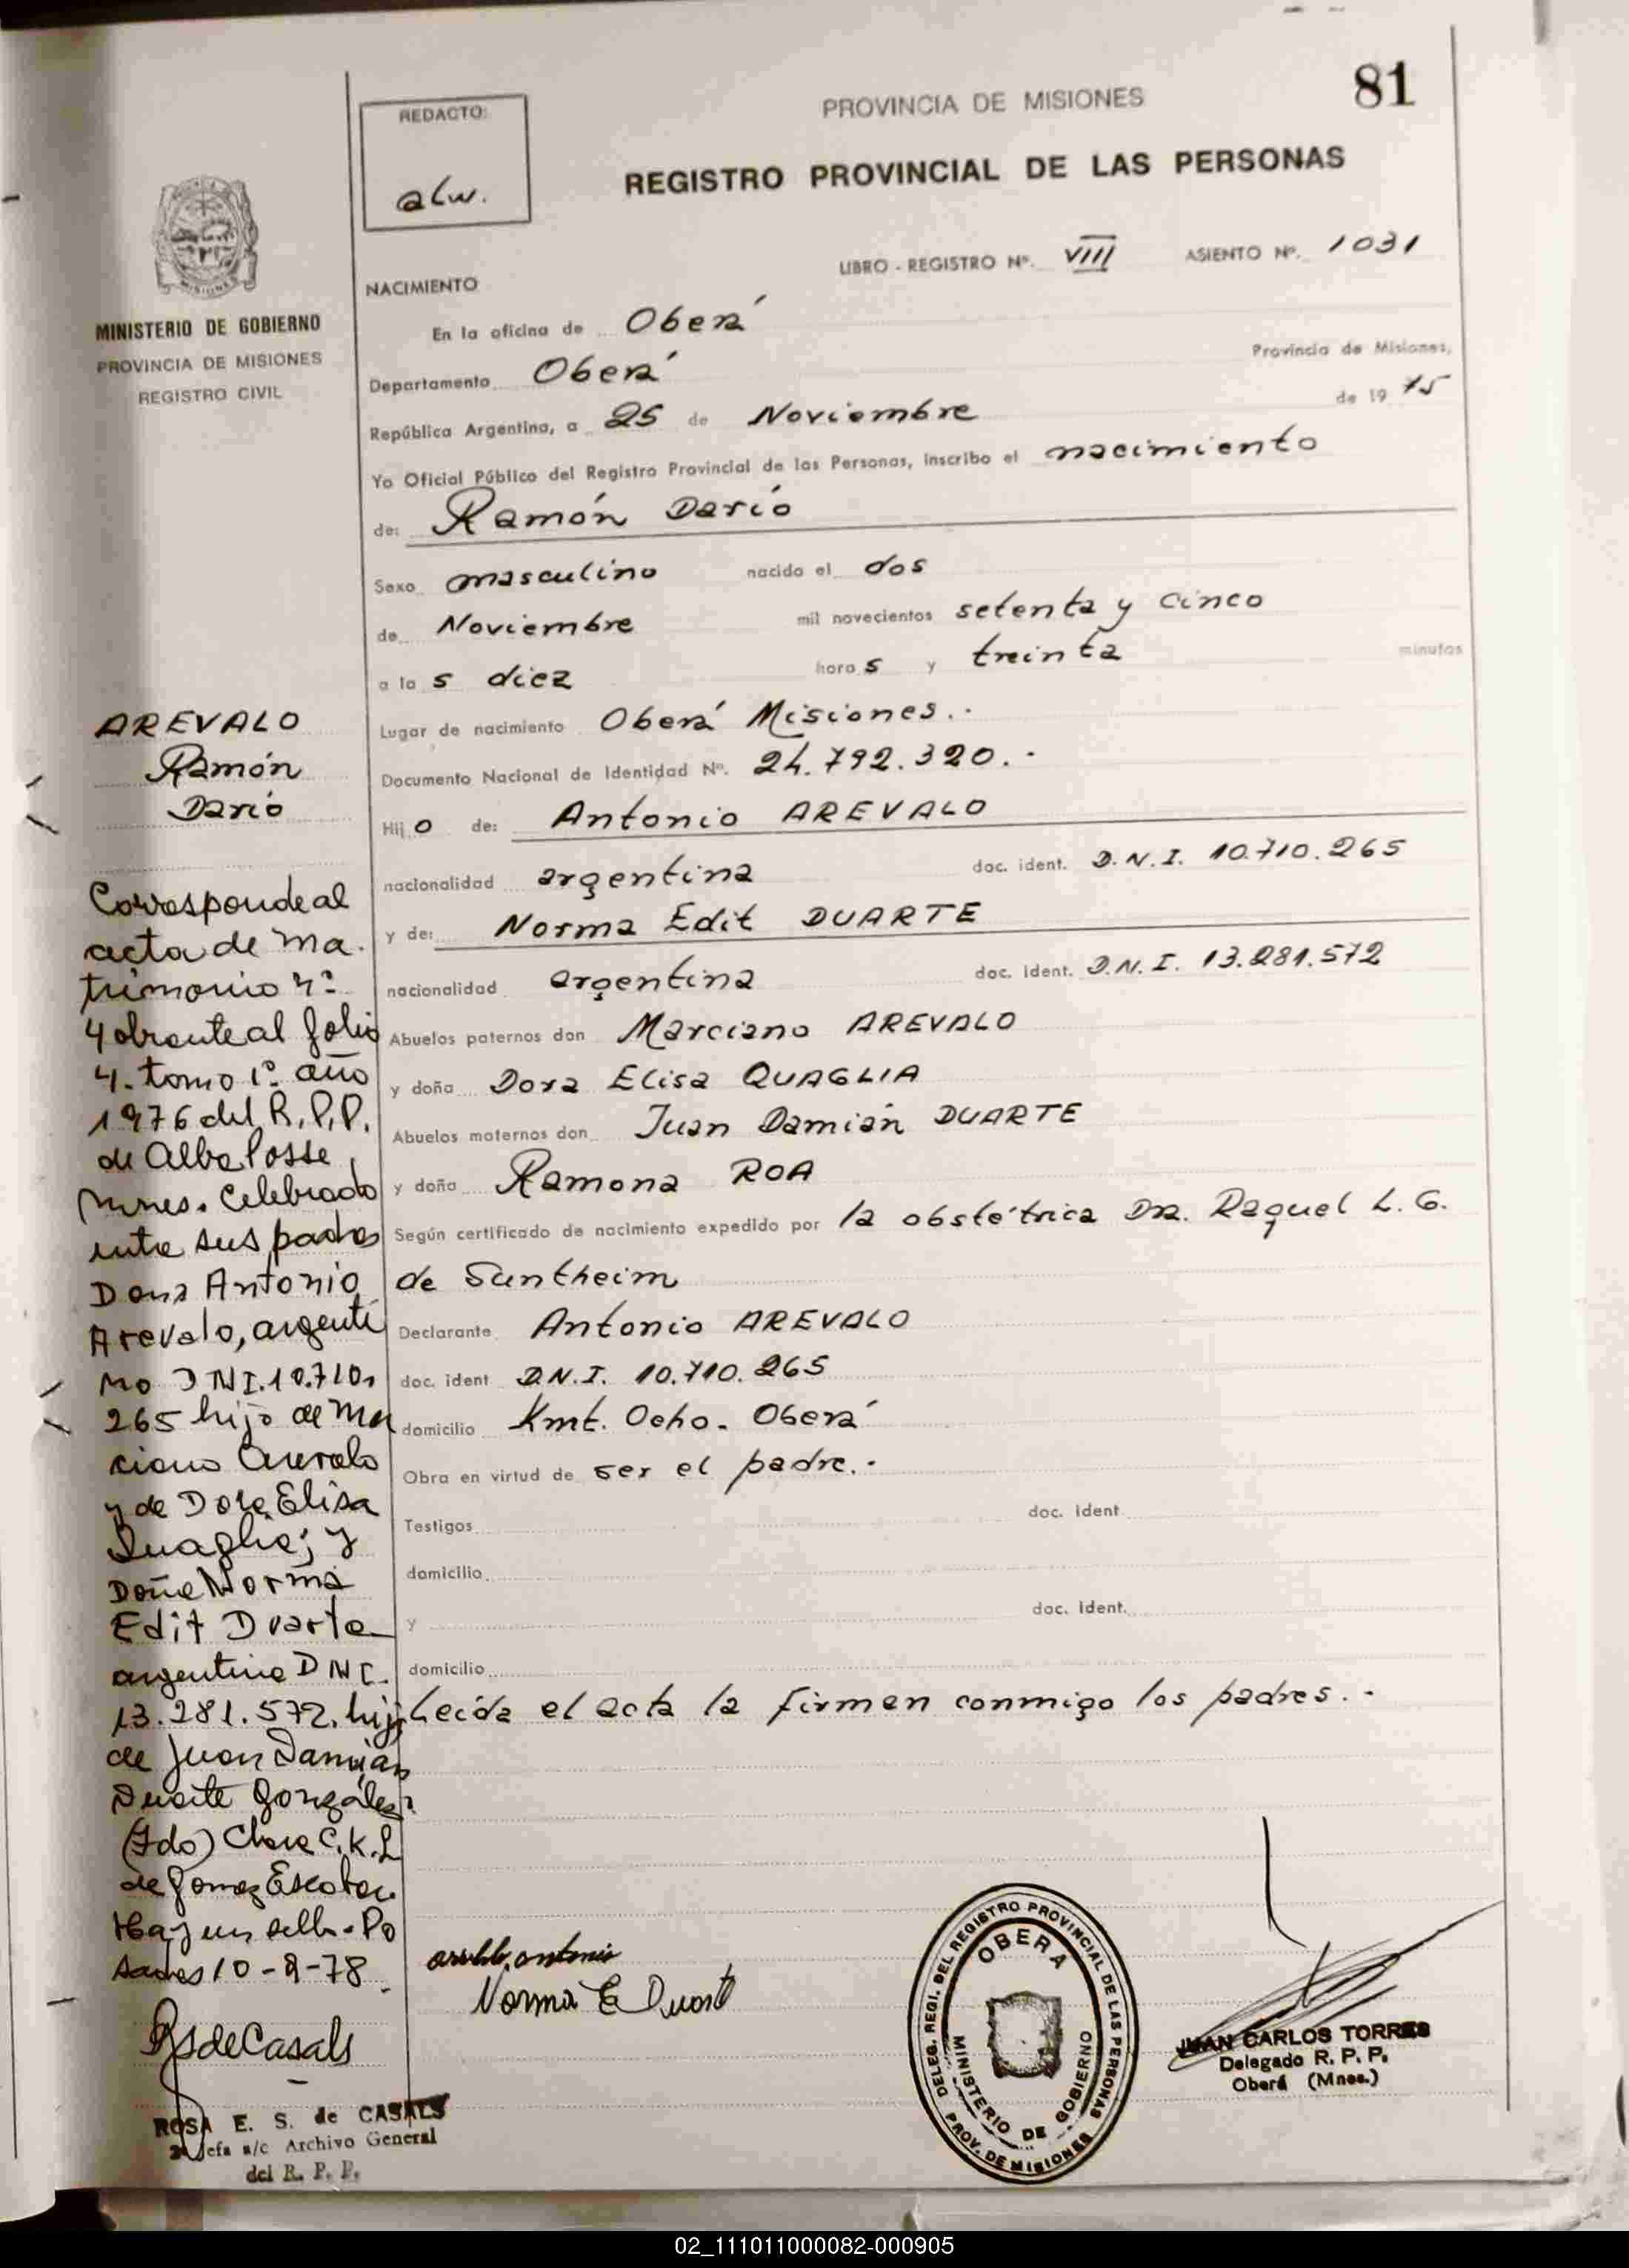 81
PROVINCIA DE MISIONES
REGISTRO PROVINCIAL DE LAS PERSONAS
REDACTO:
alw.
LIBRO - REGISTRO Nº. VIII ASIENTO Nº. 1031
MINISTERIO DE GOBIERNO
PROVINCIA DE MISIONES
REGISTRO CIVIL
NACIMIENTO
En la oficina de Oberá
Departamento Oberá Provincia de Misiones,
República Argentina, a 25 de Noviembre de 1975
Yo Oficial Público del Registro Provincial de las Personas, inscribo el nacimiento
de: Ramón Darío
Sexo masculino nacido el dos
de Noviembre mil novecientos setenta y cinco
a las diez horas y treinta minutos
Lugar de nacimiento Oberá Misiones.-
Documento Nacional de Identidad Nº. 24.792.320.-
Hijo de: Antonio AREVALO
nacionalidad argentina doc. ident. D.N.I. 10.710.265
y de: Norma Edit DUARTE
nacionalidad argentina doc. ident. D.N.I. 13.281.572
Abuelos paternos don Marciano AREVALO
y doña Dora Elisa QUAGLIA
Abuelos maternos don Juan Damián DUARTE
y doña Ramona ROA
Según certificado de nacimiento expedido por la obstétrica Dra. Raquel L. G.
de Suntheim
Declarante Antonio AREVALO
doc. ident D.N.I. 10.710.265
domicilio Kmt. Ocho. Oberá
Obra en virtud de ser el padre.-
Testigos doc. ident
domicilio
y doc. ident.
domicilio
Leída el acta la firman conmigo los padres.-
AREVALO
Ramón
Darío
Corresponde al
acta de ma.
trimonio nº
4 obrante al folio
4. tomo 1º año
1976 del R.P.P.
de Alba Posse,
Mnes. Celebrado
entre sus padres
Dons Antonio
Arevalo, argenti
no DNI.10.710.
265 hijo de Mar
ciano Arevalo
y de Dora Elisa
Quaglia; y
Doña Norma
Edit Duarte
argentina DNI.
13.281.572. hija
de Juan Damian
Duarte González
(Fdo) Clara C.K.L
de Gomez Escobar
Hay un sello. Po
sadas 10-2-78
RSdeCasals
ROSA E. S. de CASALS
2ª Jefa a/c Archivo General
del R. P. P.
arebalo, antonio
Norma E Duart
DELEG. REGI. DEL REGISTRO PROVINCIAL DE LAS PERSONAS
OBERA
MINISTERIO DE GOBIERNO
PROV. DE MISIONES
JUAN CARLOS TORRES
Delegado R. P. P.
Oberá (Mnes.)
02_111011000082-000905